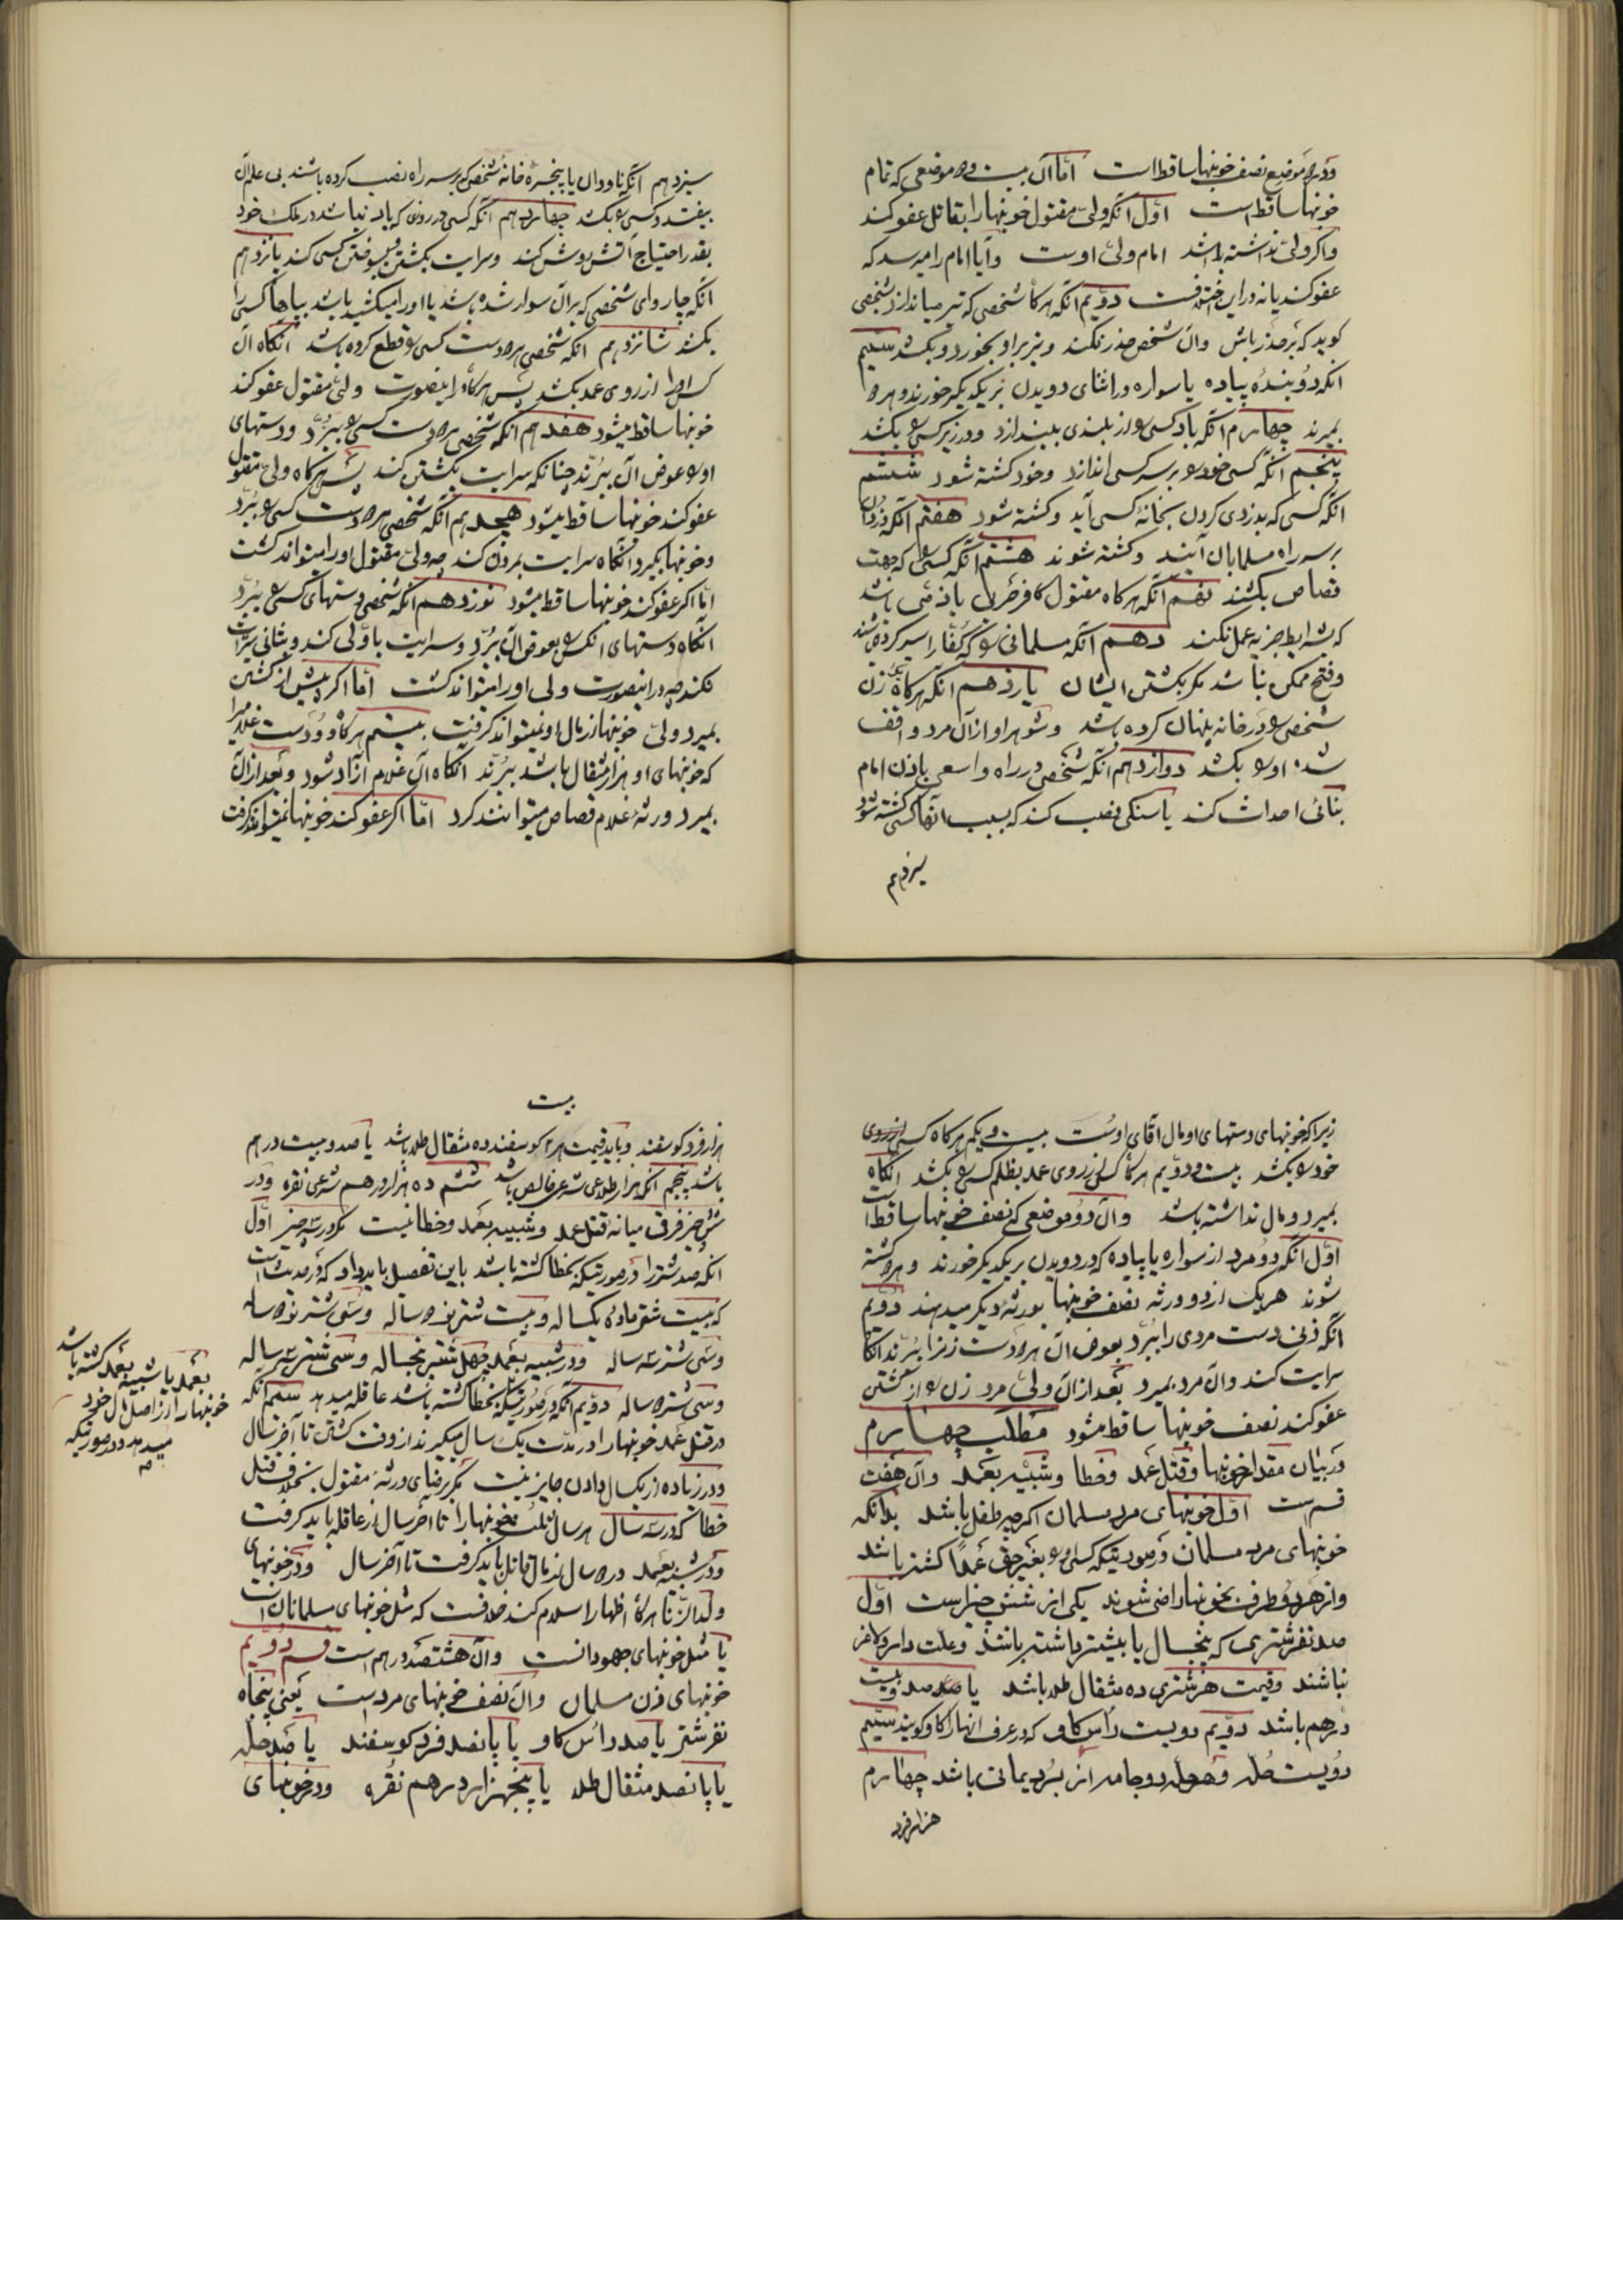 ودر دو موضع نصف خونبها ساقط است اما آن بیست و دو موضعی که تمام
خونبها ساقط است اول آنکه ولی مقتول خونبها را بقاتل عفو کند
واگر ولی نداشته باشد امام ولی اوست وآیا امام را میرسد که
عفو کند یا نه در این اختلافست دویم آنکه هرگاه شخصی که تیر میاندازد شخصی
گوید که بر حذر باش وان شخص حذر نکند وتیر بر او بخورد وبکشد سیم
آنکه دو بنده پیاده یا سواره در اثنای دویدن بر یکدیگر خورند وهر دو
بمیرند چهارم آنکه باد کسی را از بلندی بیندازد ودر زیر کسی را بکشد
پنجم آنکه کسی خود را بر سر کسی اندازد وخود کشته شود ششم
آنکه کسی که بدزدی کردن بخانهٔ کسی آید وکشته شود هفتم آنکه دزدان
بر سر راه مسلمانان آیند وکشته شوند هشتم آنکه کسی را که جهت
قصاص بکشند نهم آنکه هرگاه مقتول کافر حربی یا ذمی باشد
که بشرایط جزیه عمل نکند دهم آنکه مسلمانی را که کفار اسیر کرده باشند
وفتح ممکن نباشد مگر بکشتن ایشان یازدهم آنکه هرگاه زن
شخصی را در خانه پنهان کرده باشد وشوهر او از آن مرد واقف
شده او را بکشد دوازدهم آنکه شخصی در راه واسعی باذن امام
بنائی احداث کند یا سنگی نصب کند که بسبب آنها کسی کشته شود
سیزدهم
سیزدهم آنکه ناودان یا پنجرهٔ خانهٔ شخصی که بر سر راه نصب کرده باشند بی علم آن
بیفتد وکسی را بکشد چهاردهم آنکه کسی در روزی که باد نباشد در ملک خود
بقدر احتیاج آتش روشن کند وسرایت بکشتن وسوختن کسی کند پانزدهم
آنکه چاروای شخصی که بر آن سوار شده باشد یا او را میکشیده باشد بپاها کسی را
بکشد شانزدهم آنکه شخصی هر دو دست کسی را قطع کرده باشد آنگاه آن
کس او را از روی عمد بکشد پس هرگاه در اینصورت ولی مقتول عفو کند
خونبها ساقط میشود هفدهم آنکه شخصی هر دو دست کسی را ببرد ودستهای
او را عوض آن ببرند چنانکه سرایت بکشتن کند پس هرگاه ولی مقتول
عفو کند خونبها ساقط میشود هیجدهم آنکه شخصی هر دو دست کسی را ببرد
وخونبها بگیرد وآنگاه سرایت بمردن کند چه ولی مقتول او را میتواند کشت
اما اگر عفو کند خونبها ساقط میشود نوزدهم آنکه شخصی دستهای کسی را ببرد
آنگاه دستهای آنکس را بعوض آن ببرد وسرایت باولی کند وبثانی سرایت
نکند چه در اینصورت ولی او را میتواند کشت اما اگر پیش از کشتن
بمیرد ولی خونبها از مال او نمیتواند گرفت بیستم هرگاه دو دست غلامی را
که خونبهای او هزار مثقال باشد ببرند آنگاه آن غلام آزاد شود وبعد از آن
بمیرد ورثهٔ غلام قصاص میتوانند کرد اما اگر عفو کند خونبها نمیتواند گرفت
زیرا که خونبهای دستهای او مال آقای اوست بیست ویکم هرگاه کسی از روی
خود را بکشد بیست ودویم هرگاه کسی از روی عمد بظلم کسی را بکشد آنگاه
بمیرد ومال نداشته باشد وآن دو موضعی که نصف خونبها ساقط است
اول آنکه دو مرد از سواره یا پیاده که در دویدن بر یکدیگر خورند وهر دو کشته
شوند هر یک از دو ورثه نصف خونبها بورثهٔ دیگر میدهند دویم
آنکه زنی دست مردی را ببرد بعوض آن هر دو دست زن را ببرند آنگاه
سرایت کند وآن مرد بمیرد بعد از آن ولی مرد زن را از کشتن
عفو کند نصف خونبها ساقط میشود مطلب چهارم
در بیان مقدار خونبها وقتل عمد وخطا وشبیه بعمد وآن هفت
قسم است اول خونبهای مرد مسلمان اگرچه طفل باشد بدانکه
خونبهای مرد مسلمان در صورتیکه کسی او را بغیر حق عمداً کشته باشد
واز هر دو طرف بخونبها راضی شوند یکی از شش چیز است اول
صد نفر شتری که پنجسال یا بیشتر داشته باشند وعلت دار ولاغر
نباشند وقیمت هر شتری ده مثقال طلا باشد یا صد وبیست
درهم باشد دویم دویست رأس گاو که در عرف انها را گاو گویند سیم
دویست حله وهر حله دو جامه از برد یمانی باشد چهارم
هزار فرد
بیست
هزار فرد گوسفند وباید قیمت هر گوسفند ده مثقال طلا باشد یا صد وبیست درهم
باشد پنجم آنکه هزار طلای شرعی خالص باشد ششم ده هزار درهم شرعی نقره ودر
شش چیز فرق میانه قتل عمد وشبیه بعمد وخطا نیست مگر در سه چیز اول
آنکه صد شتر را در صورتیکه بخطا کشته باشد باین تفصیل باید داد که در حدیث است
که بیست شتر مادهٔ یکساله وبیست شتر نر دو ساله وسی شتر دو ساله
وسی شتر سه ساله ودر شبیه بعمد چهل شتر پنجساله وسی شتر سه ساله
وسی شتر دو ساله دویم آنکه در صورتیکه بخطا کشته باشد عاقله میدهد سیم آنکه
در قتل عمد خونبها را در مدت یک سال میگیرند از وقت کشتن تا آخر سال
ودر زیاده از یکسال دادن جایز نیست مگر برضای ورثهٔ مقتول بخلاف قتل
خطا که در سه سال هر سال ثلث خونبها را تا آخر سال از عاقله باید گرفت
ودر شبیه بعمد در دو سال از مال قاتل باید گرفت تا آخر سال ودر خونبهای
ولد الزنا هرگاه اظهار اسلام کند خلافست که مثل خونبهای مسلمانان است
یا مثل خونبهای جهودانست وآن هشتصد درهم است قسم دویم
خونبهای زن مسلمان وآن نصف خونبهای مرد است یعنی پنجاه
نفر شتر یا صد رأس گاو یا پانصد فرد گوسفند یا صد حله
یا پانصد مثقال طلا یا پنجهزار درهم نقره ودر خونبهای
بعمد یا شبیه بعمد کشته باشد
خونبها را از اصل مال خود
میدهد ودر صورتیکه